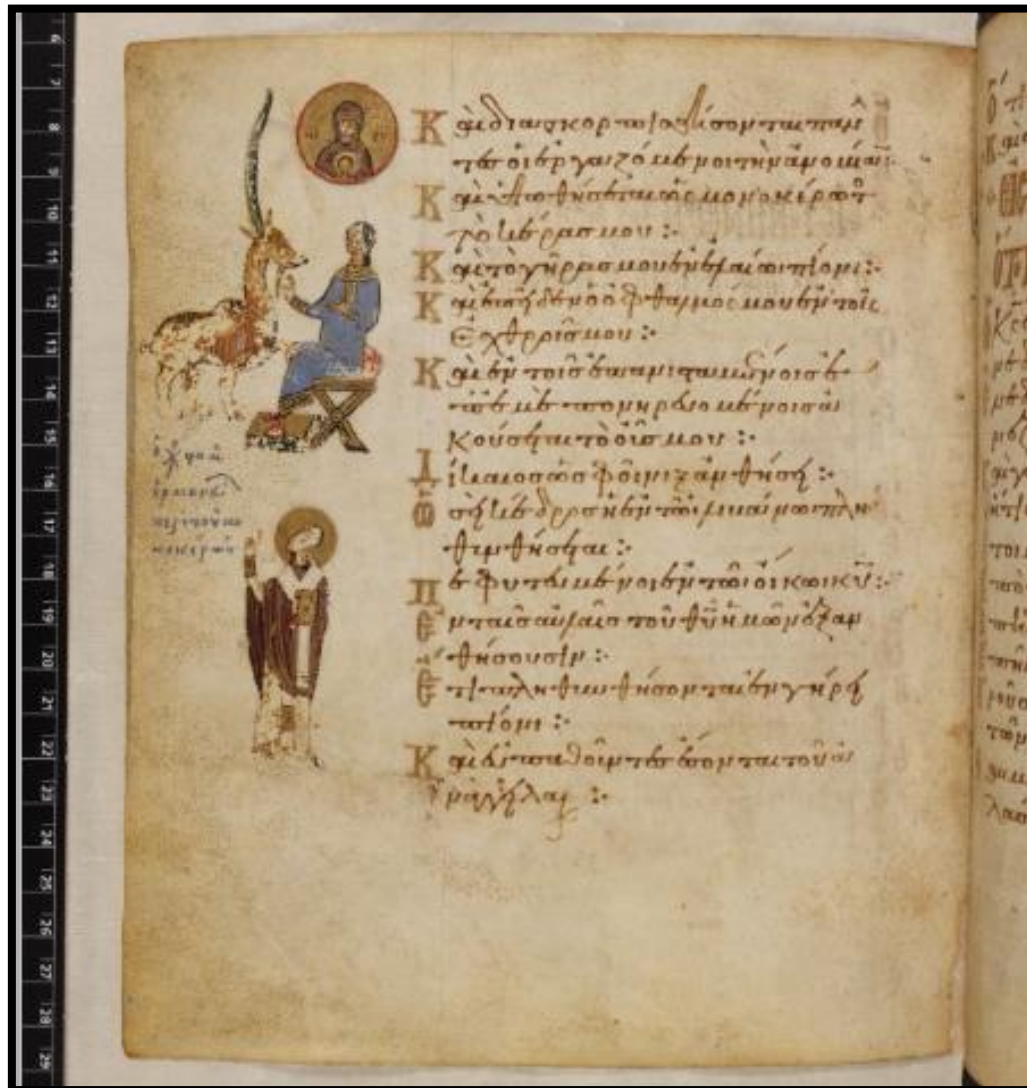 Καὶ διασκορπισθήσονται πάν
τες οἱ ἐργαζόμενοι τὴν ἀνομίαν:
Καὶ ὑψωθήσεται ὡς μονοκέρωτ
τὸ κέρας μου :·
Καὶ τὸ γῆρας μου ἐν ἐλαίωι πίονι:·
Καὶ ἐπεῖδεν ὁ ὀφθαλμός μου ἐν τοῖς
ἐχθροῖς μου :·
Καὶ ἐν τοῖς ἐπανισταμένοις ἐ
π' ἐμὲ πονηρευομένοις ἀ
κούσεται τὸ οὖς μου :·
Δίκαιος ὡς φοῖνιξ ἀνθήσει :·
ὡσεὶ κέδρος ἡ ἐν τῶι λιβάνωι πλη
θυνθήσεται :·
Πεφυτευμένοι ἐν τῶι οἴκωι κυ :·
Ἐν ταῖς αὐλαῖς τοῦ θυ ἡμῶν ἐξαν
θήσουσιν :·
Ἔτι πληθυνθήσονται ἐν γήρει
πίονι :·
Καὶ εὐπαθοῦντες ἔσονται τοῦ ἀ
ναγγεῖλαι :·